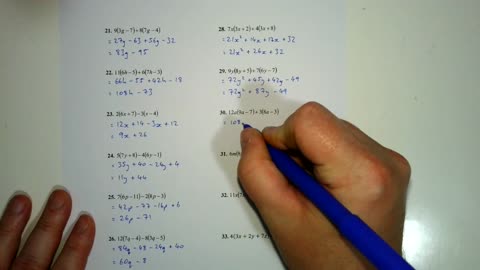 21. 9(3g − 7) + 8(7g − 4)
= 27g − 63 + 56g − 32
= 83g − 95
22. 11(6h − 5) + 6(7h − 3)
= 66h − 55 + 42h − 18
= 108h − 73
23. 2(6x + 7) − 3(x − 4)
= 12x + 14 − 3x + 12
= 9x + 26
24. 5(7y + 8) − 4(6y − 1)
= 35y + 40 − 24y + 4
= 11y + 44
25. 7(6p − 11) − 2(8p − 3)
= 42p − 77 − 16p + 6
= 26p − 71
26. 12(7q − 4) − 8(3q − 5)
= 84q − 48 − 24q + 40
= 60q − 8
28. 7x(3x + 2) + 4(3x + 8)
= 21x² + 14x + 12x + 32
= 21x² + 26x + 32
29. 9y(8y + 5) + 7(6y − 7)
= 72y² + 45y + 42y − 49
= 72y² + 87y − 49
30. 12a(9a − 7) + 5(6a − 3)
= 108
31. 6m(
32. 11x(
33. 4(3x + 2y + 7z)